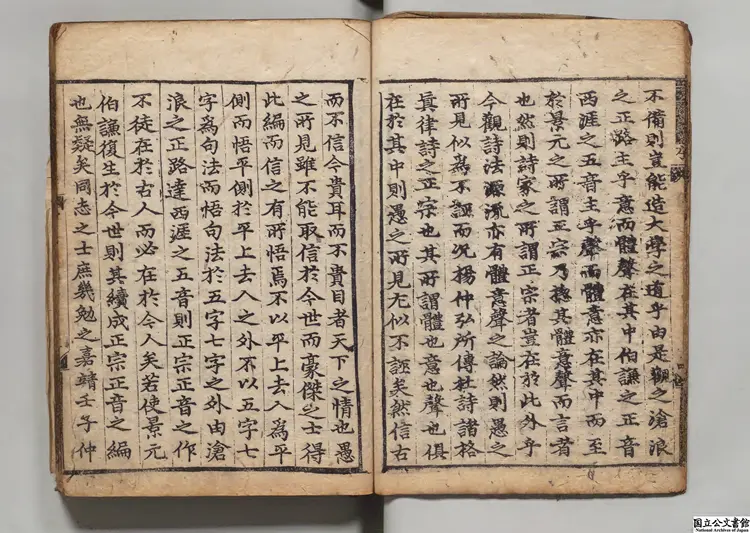 不備則豈能造大學之道乎由是觀之滄浪
之正路主乎意而體聲在其中伯謙之正音
西涯之五音主乎聲而體意亦在其中而至
於景元之所謂正宗乃摠其體意聲而言者
也然則詩家之所謂正宗者豈在於此外乎
今觀詩法源流亦有體意聲之論然則愚之
所見似爲不誣而況楊仲弘所傳杜詩諸格
眞律詩之正宗也其所謂體也意也聲也俱
在於其中則愚之所見尤似不誣矣然信古
而不信今貴耳而不貴目者天下之情也愚
之所見雖不能取信於今世而豪傑之士得
此編而信之有所悟焉不以平上去入爲平
側而悟平側於平上去入之外不以五字七
字爲句法而悟句法於五字七字之外由滄
浪之正路達西涯之五音則正宗正音之作
不徒在於古人而必在於今人矣若使景元
伯謙復生於今世則其續成正宗正音之編
也無疑矣同志之士庶幾勉之嘉靖壬子仲
国立公文書館
National Archives of Japan